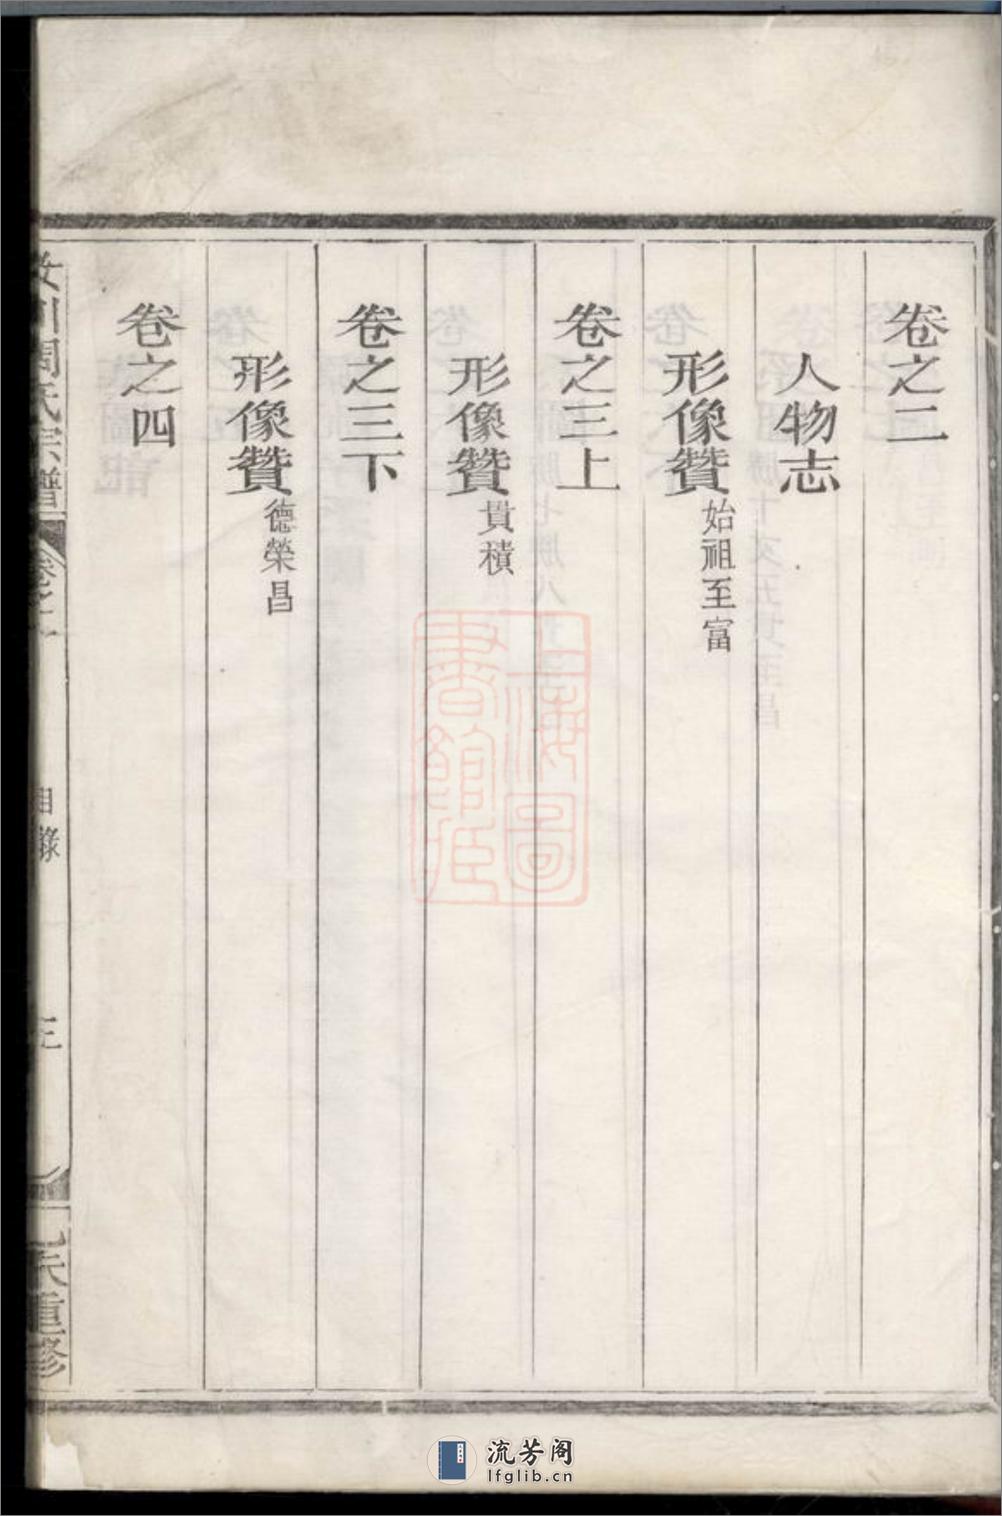 卷之二
人物志
形像贊 始祖至富
卷之三上
形像贊 貴積
卷之三下
形像贊 德榮昌
卷之四
周氏宗譜
卷之一
目錄
三
重修
上海圖書館藏
流芳阁
lfglib.cn